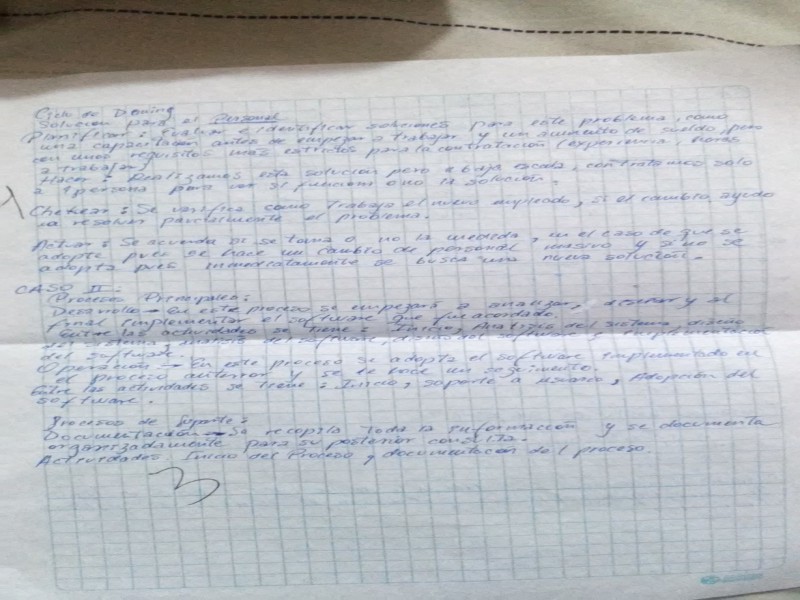 Ciclo de Deming
Solución para el Personal
Planificar: Evaluar e identificar soluciones para este problema, como
una capacitación antes de empezar a trabajar y un aumento de sueldo, pero
con unos requisitos más estrictos para la contratación (experiencia, horas
a trabajar)
Hacer: Realizamos esta solución pero a baja escala, contratamos solo
a 1 persona para ver si funciona o no la solución.
1
Chekear: Se verifica como trabaja el nuevo empleado, si el cambio ayudo
a resolver parcialmente el problema.
Actuar: Se acuerda si se toma o no la medida, en el caso de que se
adopte pues se hace un cambio de personal masivo y si no se
adopta pues inmediatamente se busca una nueva solución.
CASO II:
Procesos Principales:
Desarrollo → En este proceso se empezará a analizar, diseñar y al
final implementar el software que fue acordado.
Entre las actividades se tiene: Inicio, Análisis del sistema, diseño
del sistema, análisis del software, diseño del software, implementación
del software.
Operación → En este proceso se adopta el software implementado en
el proceso anterior y se le hace un seguimiento.
Entre las actividades se tiene: Inicio, soporte a usuario, Adopción del
software.
Procesos de Soporte:
Documentación → Se recopila toda la información y se documenta
organizadamente para su posterior consulta.
Actividades Inicio del Proceso y documentación del proceso.
3